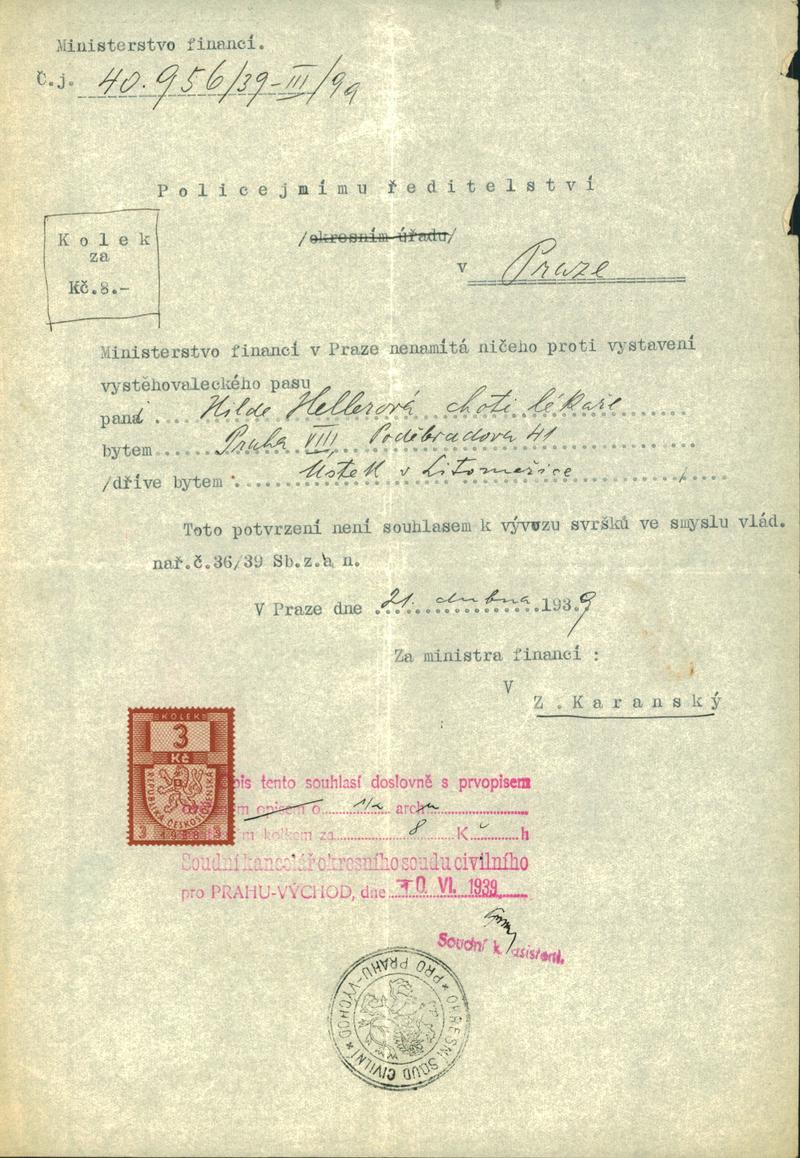 Ministerstvo financí.
Č.j. 40.956/39-III/9a
Policejnímu ředitelství
/okresním úřadu/
v Praze
Kolek
za
Kč.8.-
Ministerstvo financí v Praze nenamítá ničeho proti vystavení
vystěhovaleckého pasu
paní Hilde Hellerová choti lékaře
bytem Praha VIII, Poděbradova 41
/dříve bytem Ústek v Litoměřice /
Toto potvrzení není souhlasem k vývozu svršků ve smyslu vlád.
nař.č.36/39 Sb.z.a n.
V Praze dne 21. dubna 1939
Za ministra financí :
V
Z.Karanský
KOLEK
3
Kč
REPUBLIKA ČESKOSLOVENSKÁ
3 1938 3
opis tento souhlasí doslovně s prvopisem
opisem o 1/2 archu
kolkem za 8 K h
Soudní kancelář okresního soudu civilního
pro PRAHU-VÝCHOD, dne VI. 1939
Soudní k. asistent.
OKRESNÍ SOUD CIVILNÍ * PRO PRAHU-VÝCHOD *